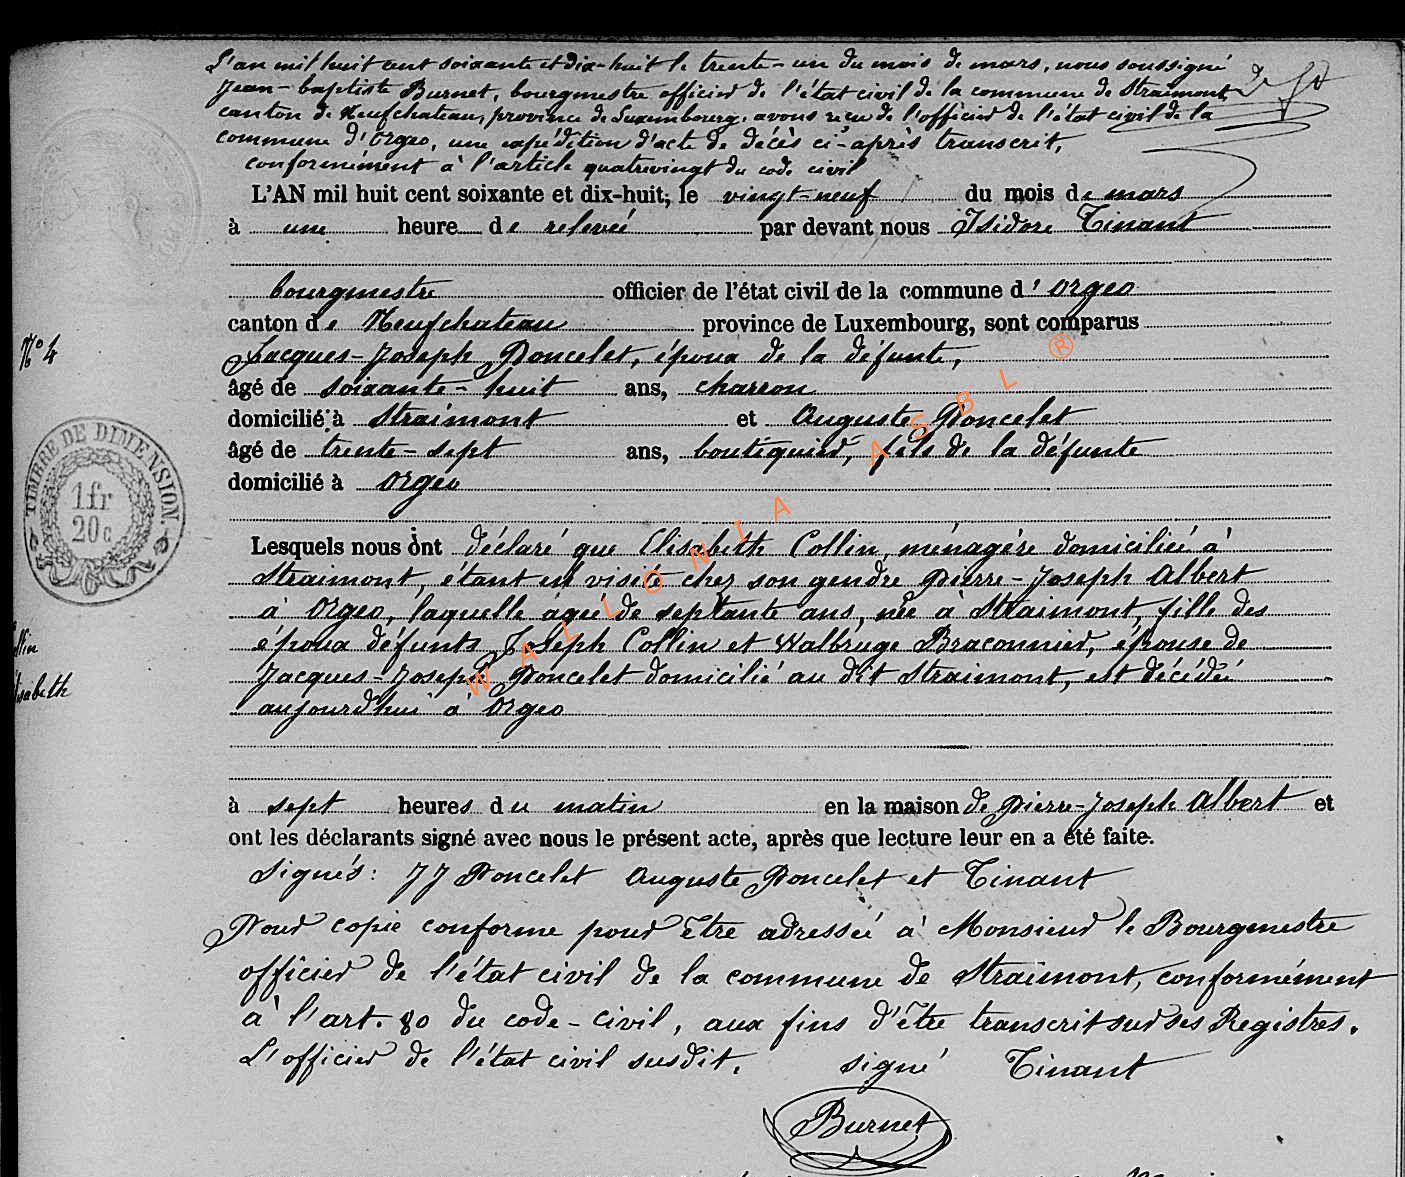 L'an mil huit cent soixante et dix-huit le trente-un du mois de mars, nous soussigné
Jean-baptiste Burnet, bourgmestre officier de l'état civil de la commune de Straimont
canton de Neufchateau, province de Luxembourg, avons reçu de l'officier de l'état civil de la
commune d'Orgeo, une expédition d'acte de décès ci-après transcrit,
conformément à l'article quatrevingt du code civil
L'AN mil huit cent soixante et dix-huit, le vingt-neuf du mois de mars
à une heure de relevée par devant nous Isidore Tinant
bourgmestre officier de l'état civil de la commune d'Orgeo
canton de Neufchateau province de Luxembourg, sont comparus
N° 4
Jacques-Joseph Poncelet, époux de la défunte,
âgé de soixante-huit ans, charron
domicilié à Straimont et Auguste Poncelet
âgé de trente-sept ans, boutiquier, fils de la défunte
domicilié à Orgeo
TIMBRE DE DIMENSION.
1 fr
20 c
Lesquels nous ont déclaré que Elisabeth Collin, ménagère domiciliée à
Straimont, étant en visite chez son gendre Pierre-Joseph Albert
à Orgeo, laquelle agée de septante ans, née à Straimont, fille des
époux défunts Joseph Collin et Walbruge Braconnier, épouse de
llin
Jacques-Joseph Poncelet domicilié au dit Straimont, est décédée
isabeth
aujourd'hui à Orgeo
à sept heures du matin en la maison de Pierre-Joseph Albert et
ont les déclarants signé avec nous le présent acte, après que lecture leur en a été faite.
Signés: JJ Poncelet Auguste Poncelet et Tinant
Pour copie conforme pour être adressée à Monsieur le Bourgmestre
officier de l'état civil de la commune de Straimont, conformément
à l'art. 80 du code-civil, aux fins d'être transcrit sur ses Registres.
L'officier de l'état civil susdit, signé Tinant
Burnet
WALLONIA ASBL ®